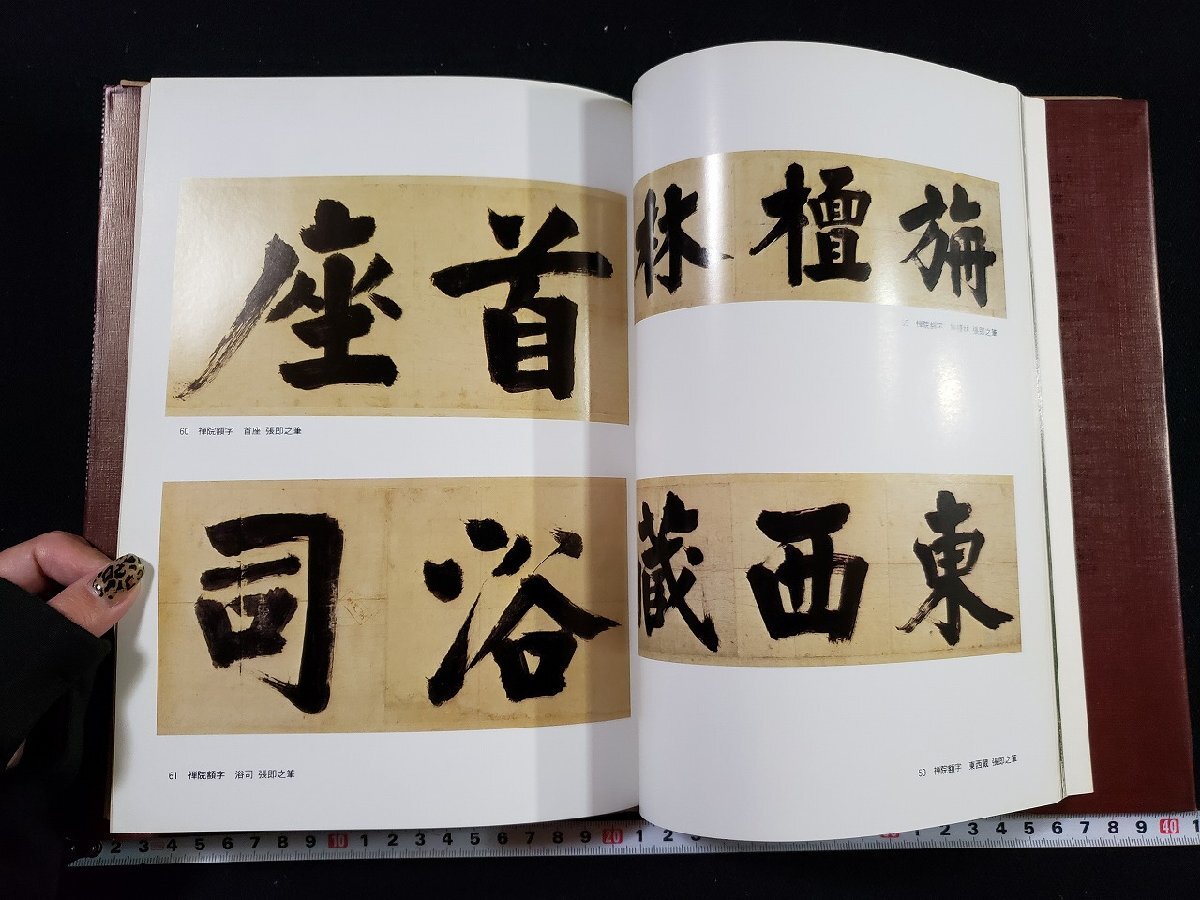 旃檀林
禅院額字 張即之筆
東西蔵
禅院額字 東西蔵 張即之筆
首座
60 禅院額字 首座 張即之筆
浴司
61 禅院額字 浴司 張即之筆
2 3 4 5 6 7 8 9 10 1 2 3 4 5 6 7 8 9 20 1 2 3 4 5 6 7 8 9 1 2 3 4 5 6 7 8 9 40 1